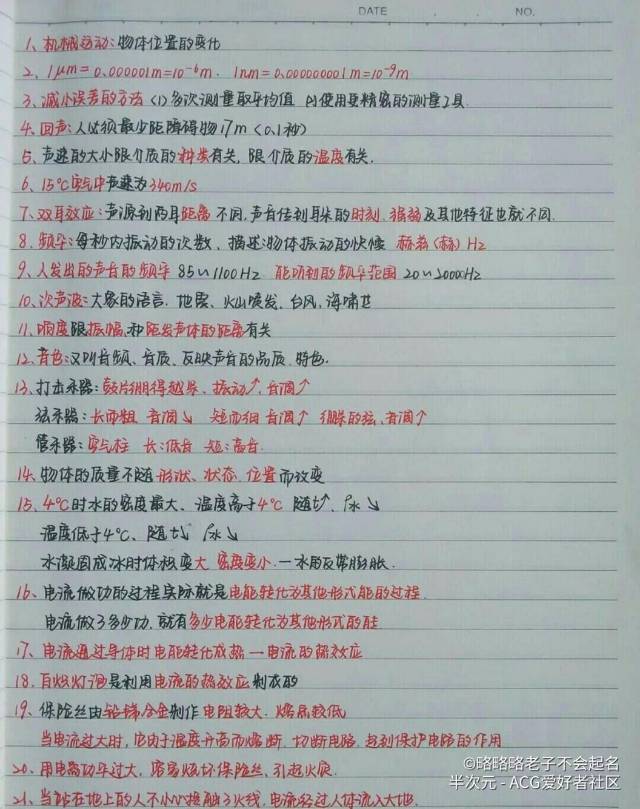 DATE NO.
1、机械运动:物体位置的变化
2、1μm=0.000001m=10⁻⁶m. 1nm=0.000000001m=10⁻⁹m
3、减小误差的方法 (1)多次测量取平均值 (2)使用更精密的测量工具.
4、回声:人必须最少距障碍物17m (0.1秒)
5、声速的大小跟介质的种类有关,跟介质的温度有关.
6、15℃空气中声速为340m/s
7、双耳效应:声源到两耳距离不同,声音传到耳朵的时刻、强弱及其他特征也就不同.
8、频率:每秒内振动的次数、描述物体振动的快慢 赫兹(赫) Hz
9、人发出的声音的频率 85~1100Hz 能听到的频率范围 20~20000Hz
10、次声波:大象的语言、地震、火山喷发、台风、海啸等
11、响度跟振幅、和距发声体的距离有关
12、音色:又叫音频、音质、反映声音的品质、特色.
13、打击乐器:鼓皮绷得越紧、振动↑、音调↑
弦乐器:长而粗 音调↓ 短而细 音调↑ 绷紧的弦、音调↑
管乐器:空气柱 长:低音 短:高音.
14、物体的质量不随形状、状态、位置而改变
15、4℃时水的密度最大、温度高于4℃ 随t↑、ρ水↓
温度低于4℃、随t↓ ρ水↓
水凝固成冰时体积变大 密度变小.一水的反常膨胀.
16、电流做功的过程实际就是电能转化为其他形式能的过程.
电流做了多少功.就有多少电能转化为其他形式的能
17、电流通过导体时电能转化成热一电流的热效应
18、白炽灯泡是利用电流的热效应制成的
19、保险丝由铅锑合金制作 电阻较大.熔点较低
当电流过大时,它由于温度升高而熔断.切断电路,起到保护电路的作用
20、用电器功率过大,容易烧坏保险丝、引起火灾.
21、当站在地上的人不小心接触了火线,电流经过人体流入大地.
©略略略老子不会起名
半次元 - ACG爱好者社区